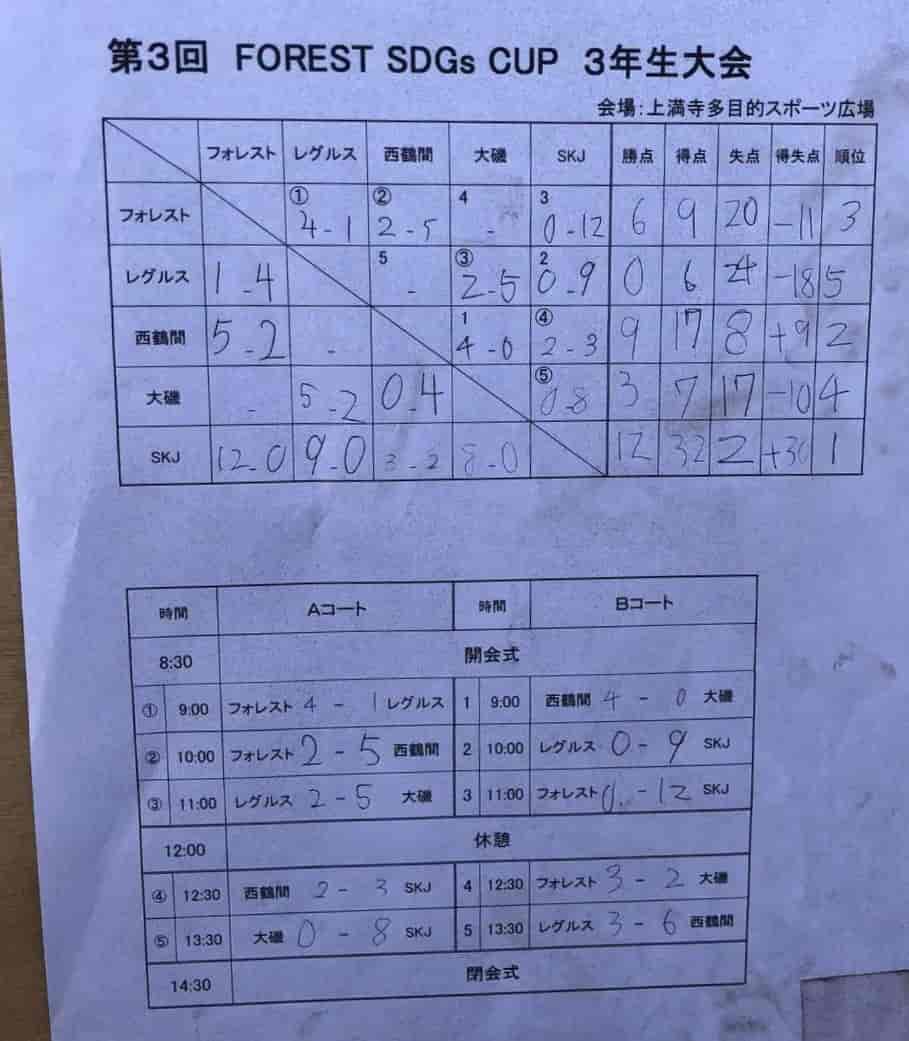 第3回 FOREST SDGs CUP 3年生大会
会場:上満寺多目的スポーツ広場
フォレスト レグルス 西鶴間 大磯 SKJ 勝点 得点 失点 得失点 順位
フォレスト ① 4-1 ② 2-5 4 - 3 0-12 6 9 20 -11 3
レグルス 1-4 5 - ③ 2-5 2 0-9 0 6 24 -18 5
西鶴間 5-2 - 1 4-0 ④ 2-3 9 17 8 +9 2
大磯 - 5-2 0-4 ⑤ 0-8 3 7 17 -10 4
SKJ 12-0 9-0 3-2 8-0 12 32 2 +30 1
時間 Aコート 時間 Bコート
8:30 開会式
① 9:00 フォレスト 4 - 1 レグルス 1 9:00 西鶴間 4 - 0 大磯
② 10:00 フォレスト 2 - 5 西鶴間 2 10:00 レグルス 0 - 9 SKJ
③ 11:00 レグルス 2 - 5 大磯 3 11:00 フォレスト 0 - 12 SKJ
12:00 休憩
④ 12:30 西鶴間 2 - 3 SKJ 4 12:30 フォレスト 3 - 2 大磯
⑤ 13:30 大磯 0 - 8 SKJ 5 13:30 レグルス 3 - 6 西鶴間
14:30 閉会式